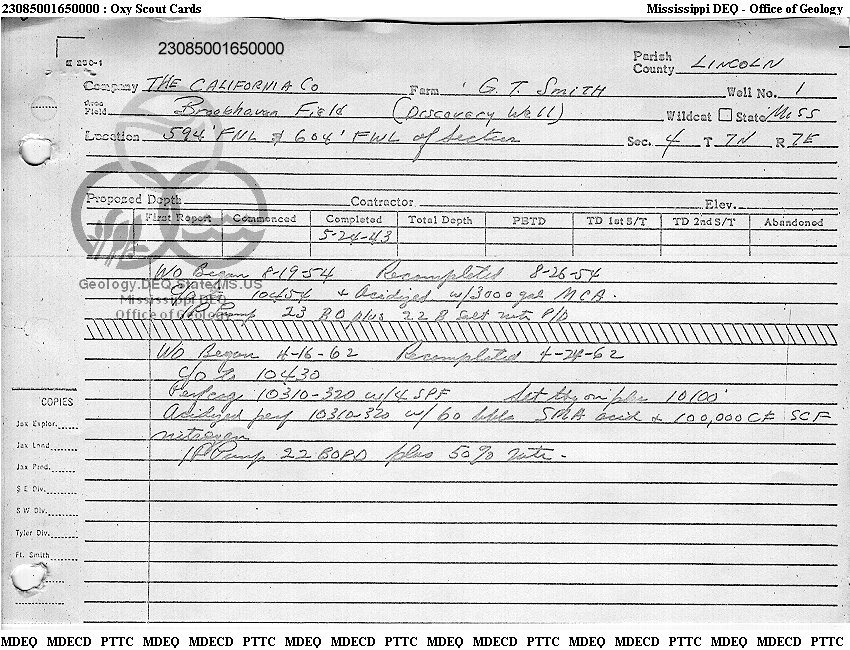 23085001650000 : Oxy Scout Cards Mississippi DEQ - Office of Geology
23085001650000
Parish
County LINCOLN
Company THE CALIFORNIA CO Farm G. T. SMITH Well No. 1
Area
Field Brookhaven Field (Discovery Well) Wildcat State Miss
Location 594' FNL & 604' FWL of Section Sec. 4 T 7N R 7E
Proposed Depth Contractor Elev.
First Report Commenced Completed Total Depth PBTD TD 1st S/T TD 2nd S/T Abandoned
5-24-43
WO Began 8-19-54 Recompleted 8-26-54
Geology.DEQ.State.MS.US
10454 & Acidized w/3000 gal MCA.
Mississippi DEQ
Office of Geology
IP Pump 23 BO plus 22 B Salt wtr P/D
WO Began 4-16-62 Recompleted 4-24-62
C/O to 10430
Perf csg 10310-320 w/4 SPF Set 10100'
COPIES
Acidized perf 10310-320 w/ 60 bbls SMA acid & 100,000 CF SCF
Jax Explor.
nitrogen
Jax Land
IP Pump 22 BOPD plus 50% wtr.
Jax Prod.
S E Div.
S W Div.
Tyler Div.
Ft. Smith
MDEQ MDECD PTTC MDEQ MDECD PTTC MDEQ MDECD PTTC MDEQ MDECD PTTC MDEQ MDECD PTTC MDEQ MDECD PTTC